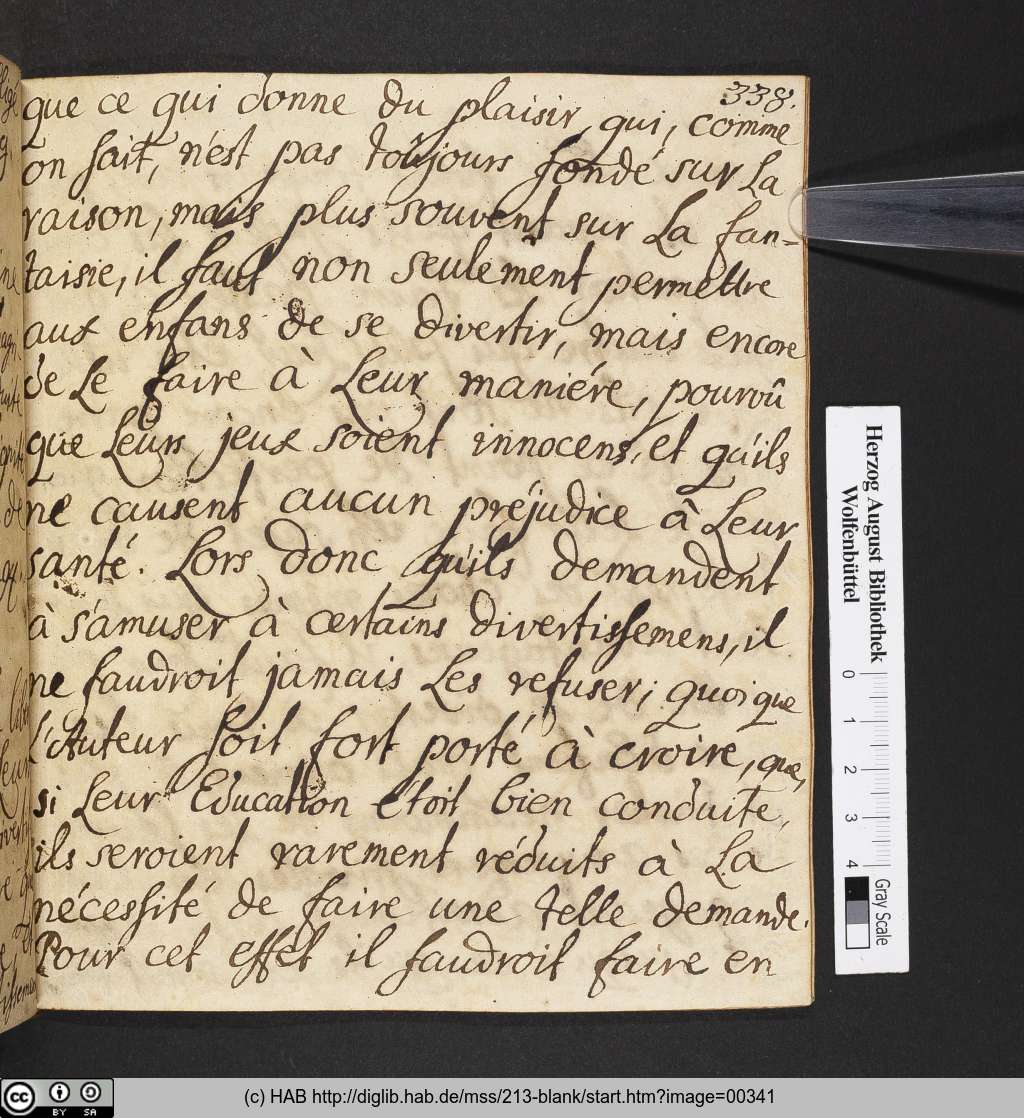 338.
que ce qui donne du plaisir, qui, comme
on sait, n'est pas toûjours fondé sur La
raison, mais plus souvent sur La fan-
taisie, il faut non seulement permettre
aux enfans de se divertir, mais encore
de Le faire à Leur maniére, pourvû
que Leurs jeux soient innocens, et qu'ils
ne causent aucun préjudice à Leur
santé. Lors donc qu'ils demandent
à s'amuser à certains divertissemens, il
ne faudroit jamais Les refuser; quoique
L'Auteur soit fort porté à croire, que,
si Leur Education étoit bien conduite,
ils seroient rarement réduits à La
nécessité de faire une telle demande.
Pour cet effet il faudroit faire en
Herzog August Bibliothek
Wolfenbüttel
0 1 2 3 4
Gray Scale
cc BY SA
(c) HAB http://diglib.hab.de/mss/213-blank/start.htm?image=00341